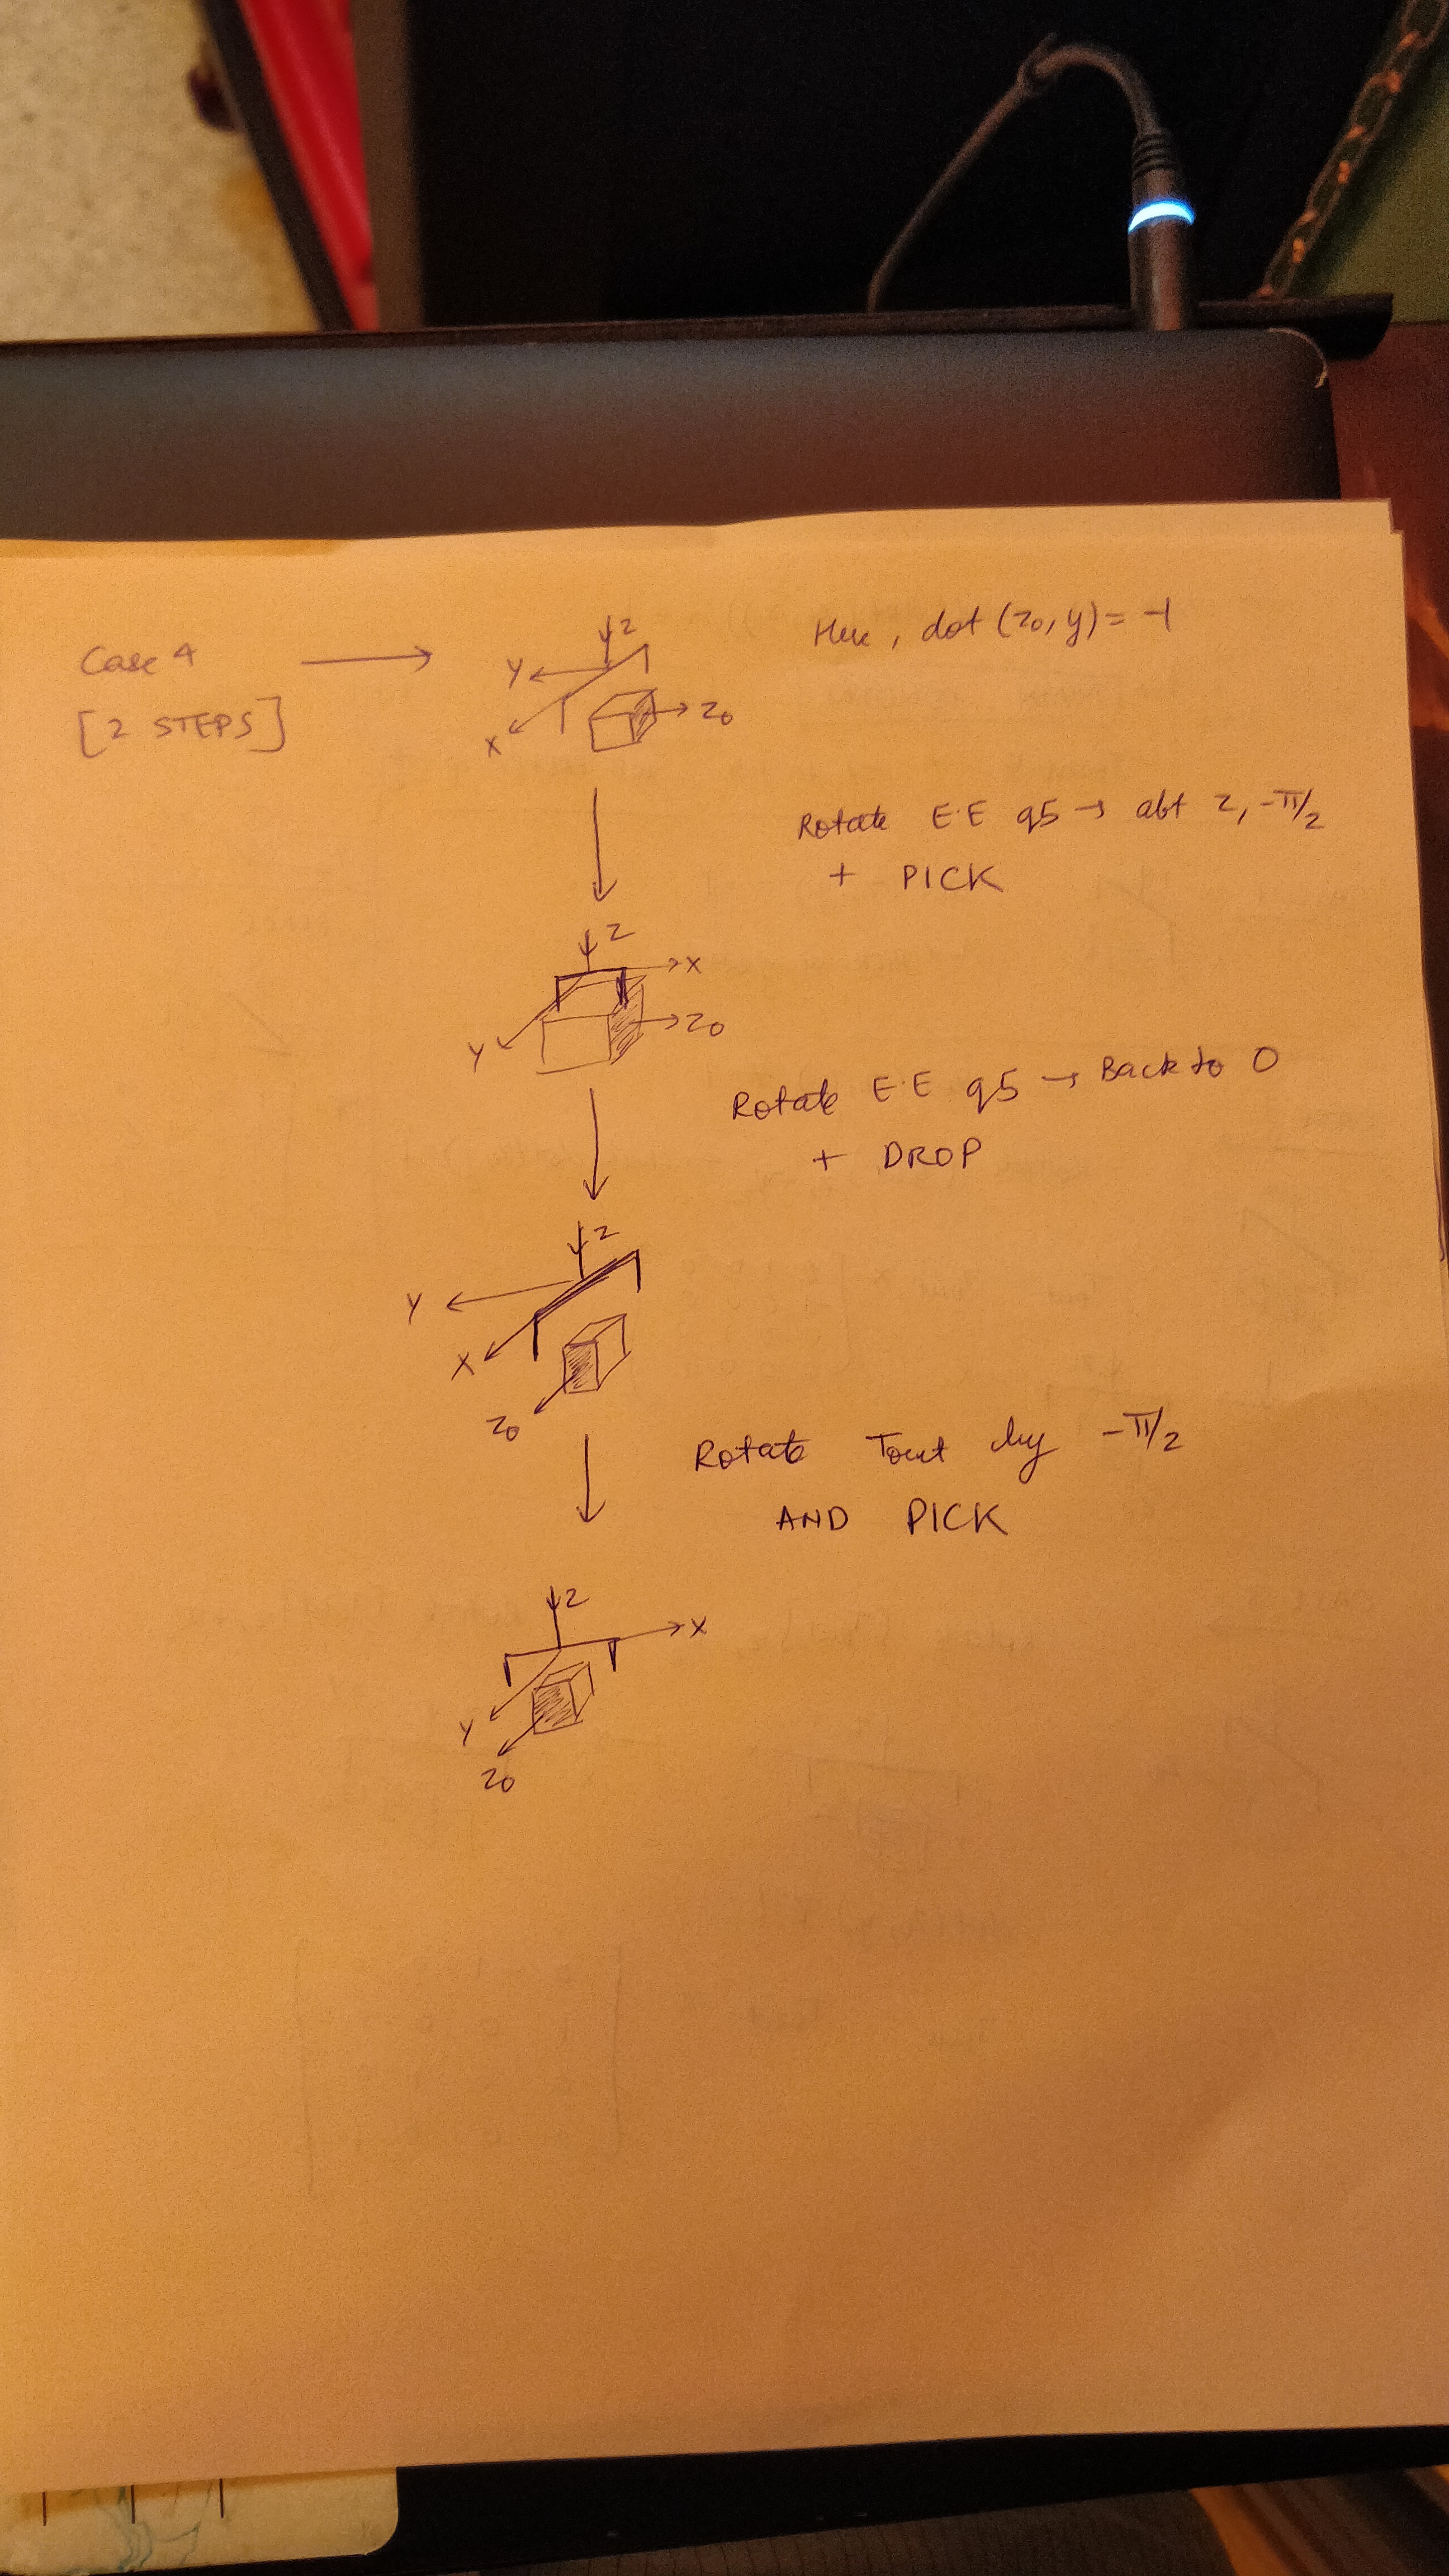 Case 4
[2 STEPS]
z
Y
X
z0
Here, dot (z0, y) = -1
Rotate E.E q5 → abt z, -π/2
+ PICK
z
X
Y
z0
Rotate E.E q5 → Back to 0
+ DROP
z
Y
X
z0
Rotate Tout by -π/2
AND PICK
z
X
Y
z0